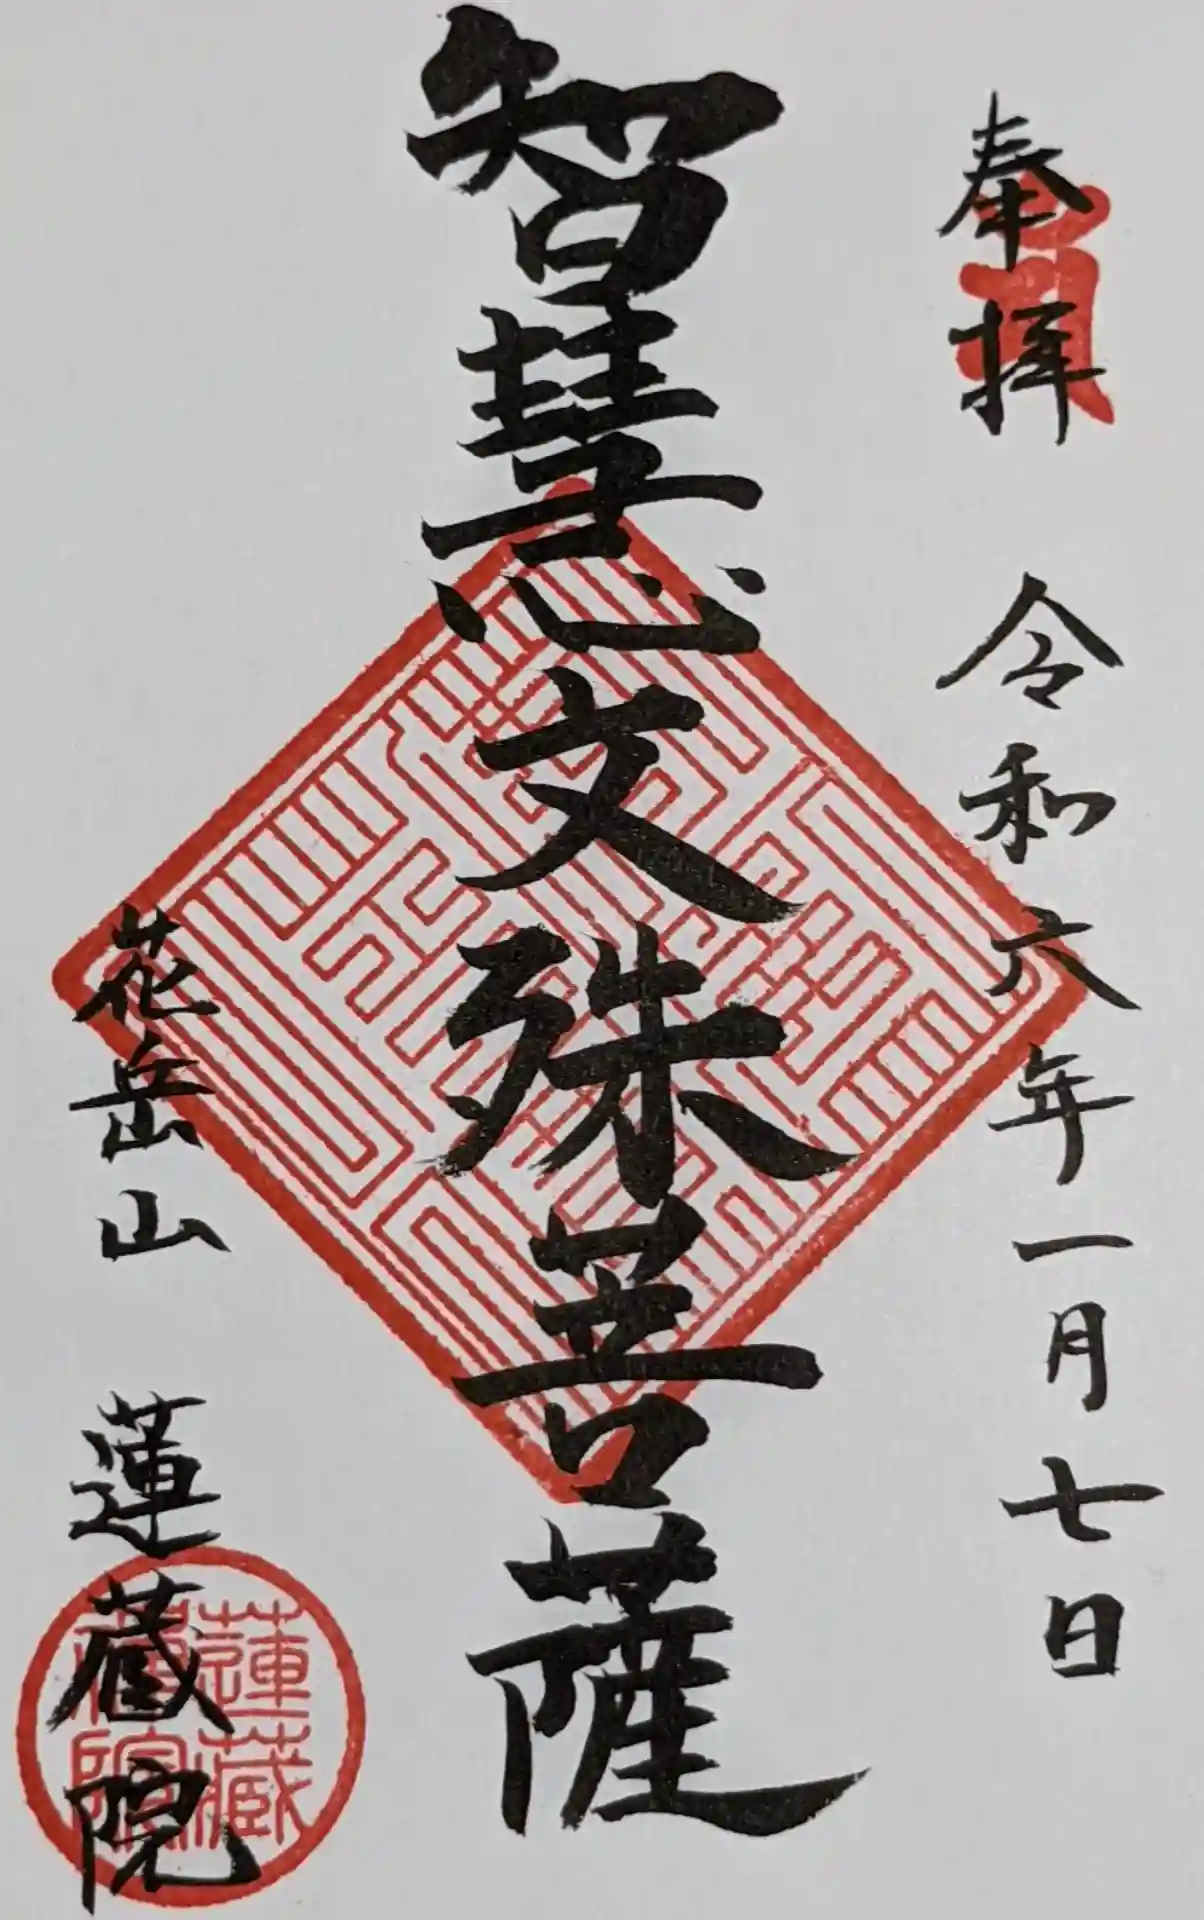 奉拝 令和六年一月七日
智慧文殊菩薩
花岳山 蓮蔵院
蓮藏